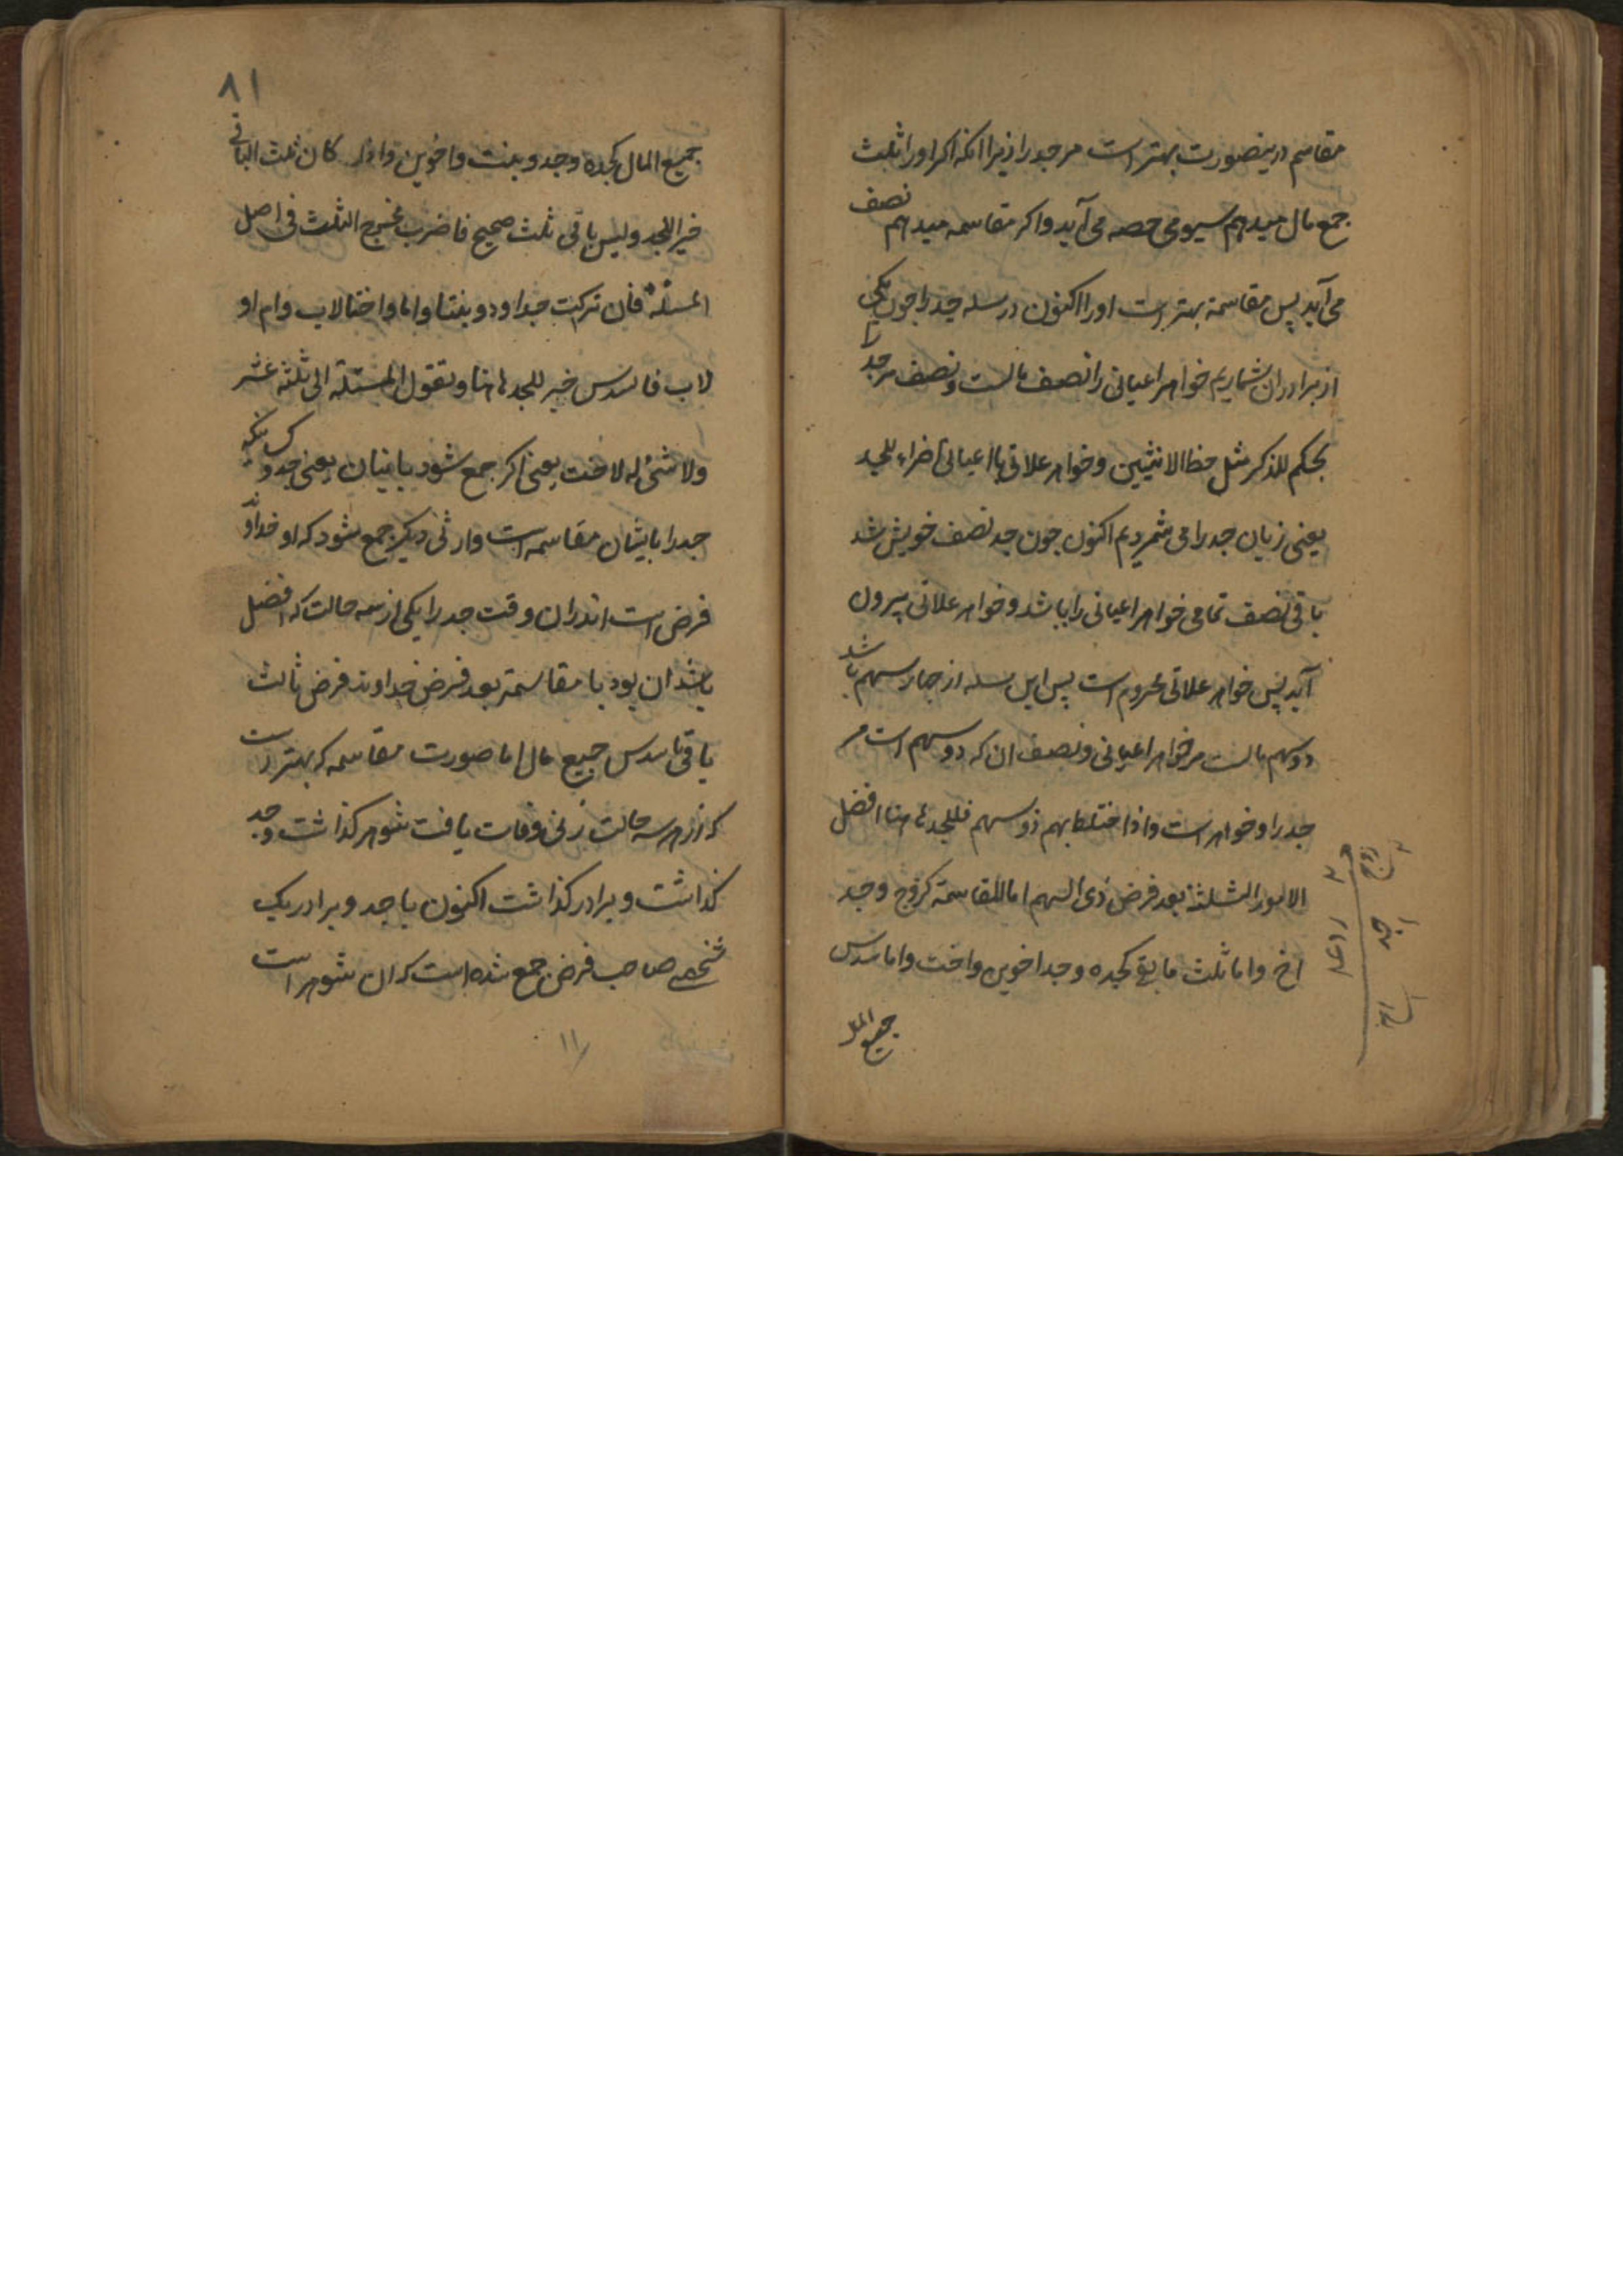 مقاسم درینصورت بهتر است مر جد را زیرا انکه اکر او را ثلث
جمع مال میدهم سیومی حصه می آید و اکر مقاسمه میدهم نصف
می آید پس مقاسمة بهتر است او را اکنون در مسله جد را جون یکی
از برادران شماریم خواهر اعیانی را نصف مالست و نصف مر جد را
بحکم للذکر مثل حظ الانثیین و خواهر علاتی با اعیانی اضراء للجد
یعنی زیان جد را می شمردیم اکنون جون جد نصف خویش شد
باقی نصف تمامی خواهر اعیانی را باشد و خواهر علاتی بیرون
آید پس خواهر علاتی محروم است پس این مسله از جهار سهم باشد
دو سهم مالست مر خواهر اعیانی و نصف ان که دو سهم است مر
جد را و خواهرست و اذا اختلط بهم ذو سهم فللجد هاهنا افضل
الامور الثلثة بعد فرض ذی السهم اما المقاسمة کزوج وجد
اخ واما ثلث ما بقی کجده وجد اخوین واخت واما سدس
جمیع المال
زوج
جد
اخ
٨١
جمیع المال کجده وجد وبنت واخوین واذا کان ثلث الباقی
خیر اللجد ولیس باقی ثلث صحیح فاضرب مخرج الثلث فی اصل
المسئلة فان ترکت جدا و زوجا وبنتا واما واختا لاب وام او
لاب فالسدس خیر للجد هاهنا وتقول المسئلة الی ثلثه عشر
ولا شئ له لاخت یعنی اکر جمع شود با ینیان یعنی جد و
جد را با یشان مقاسمه است وارثی دیکر جمع شود که او خداوند
فرض است اندران وقت جد را یکی از سه حالت که افضل
باشد ان بود یا مقاسمة بعد فرض خداوند فرض ثالث
باقی یا سدس جمیع مال اما صورت مقاسمه که بهتر است
که از هر سه حالت زنی وفات یافت شوهر کذاشت و جد
کذاشت و برادر کذاشت اکنون با جد و برادر یک
شخصی صاحب فرض جمع شده است که ان شوهر است
١١